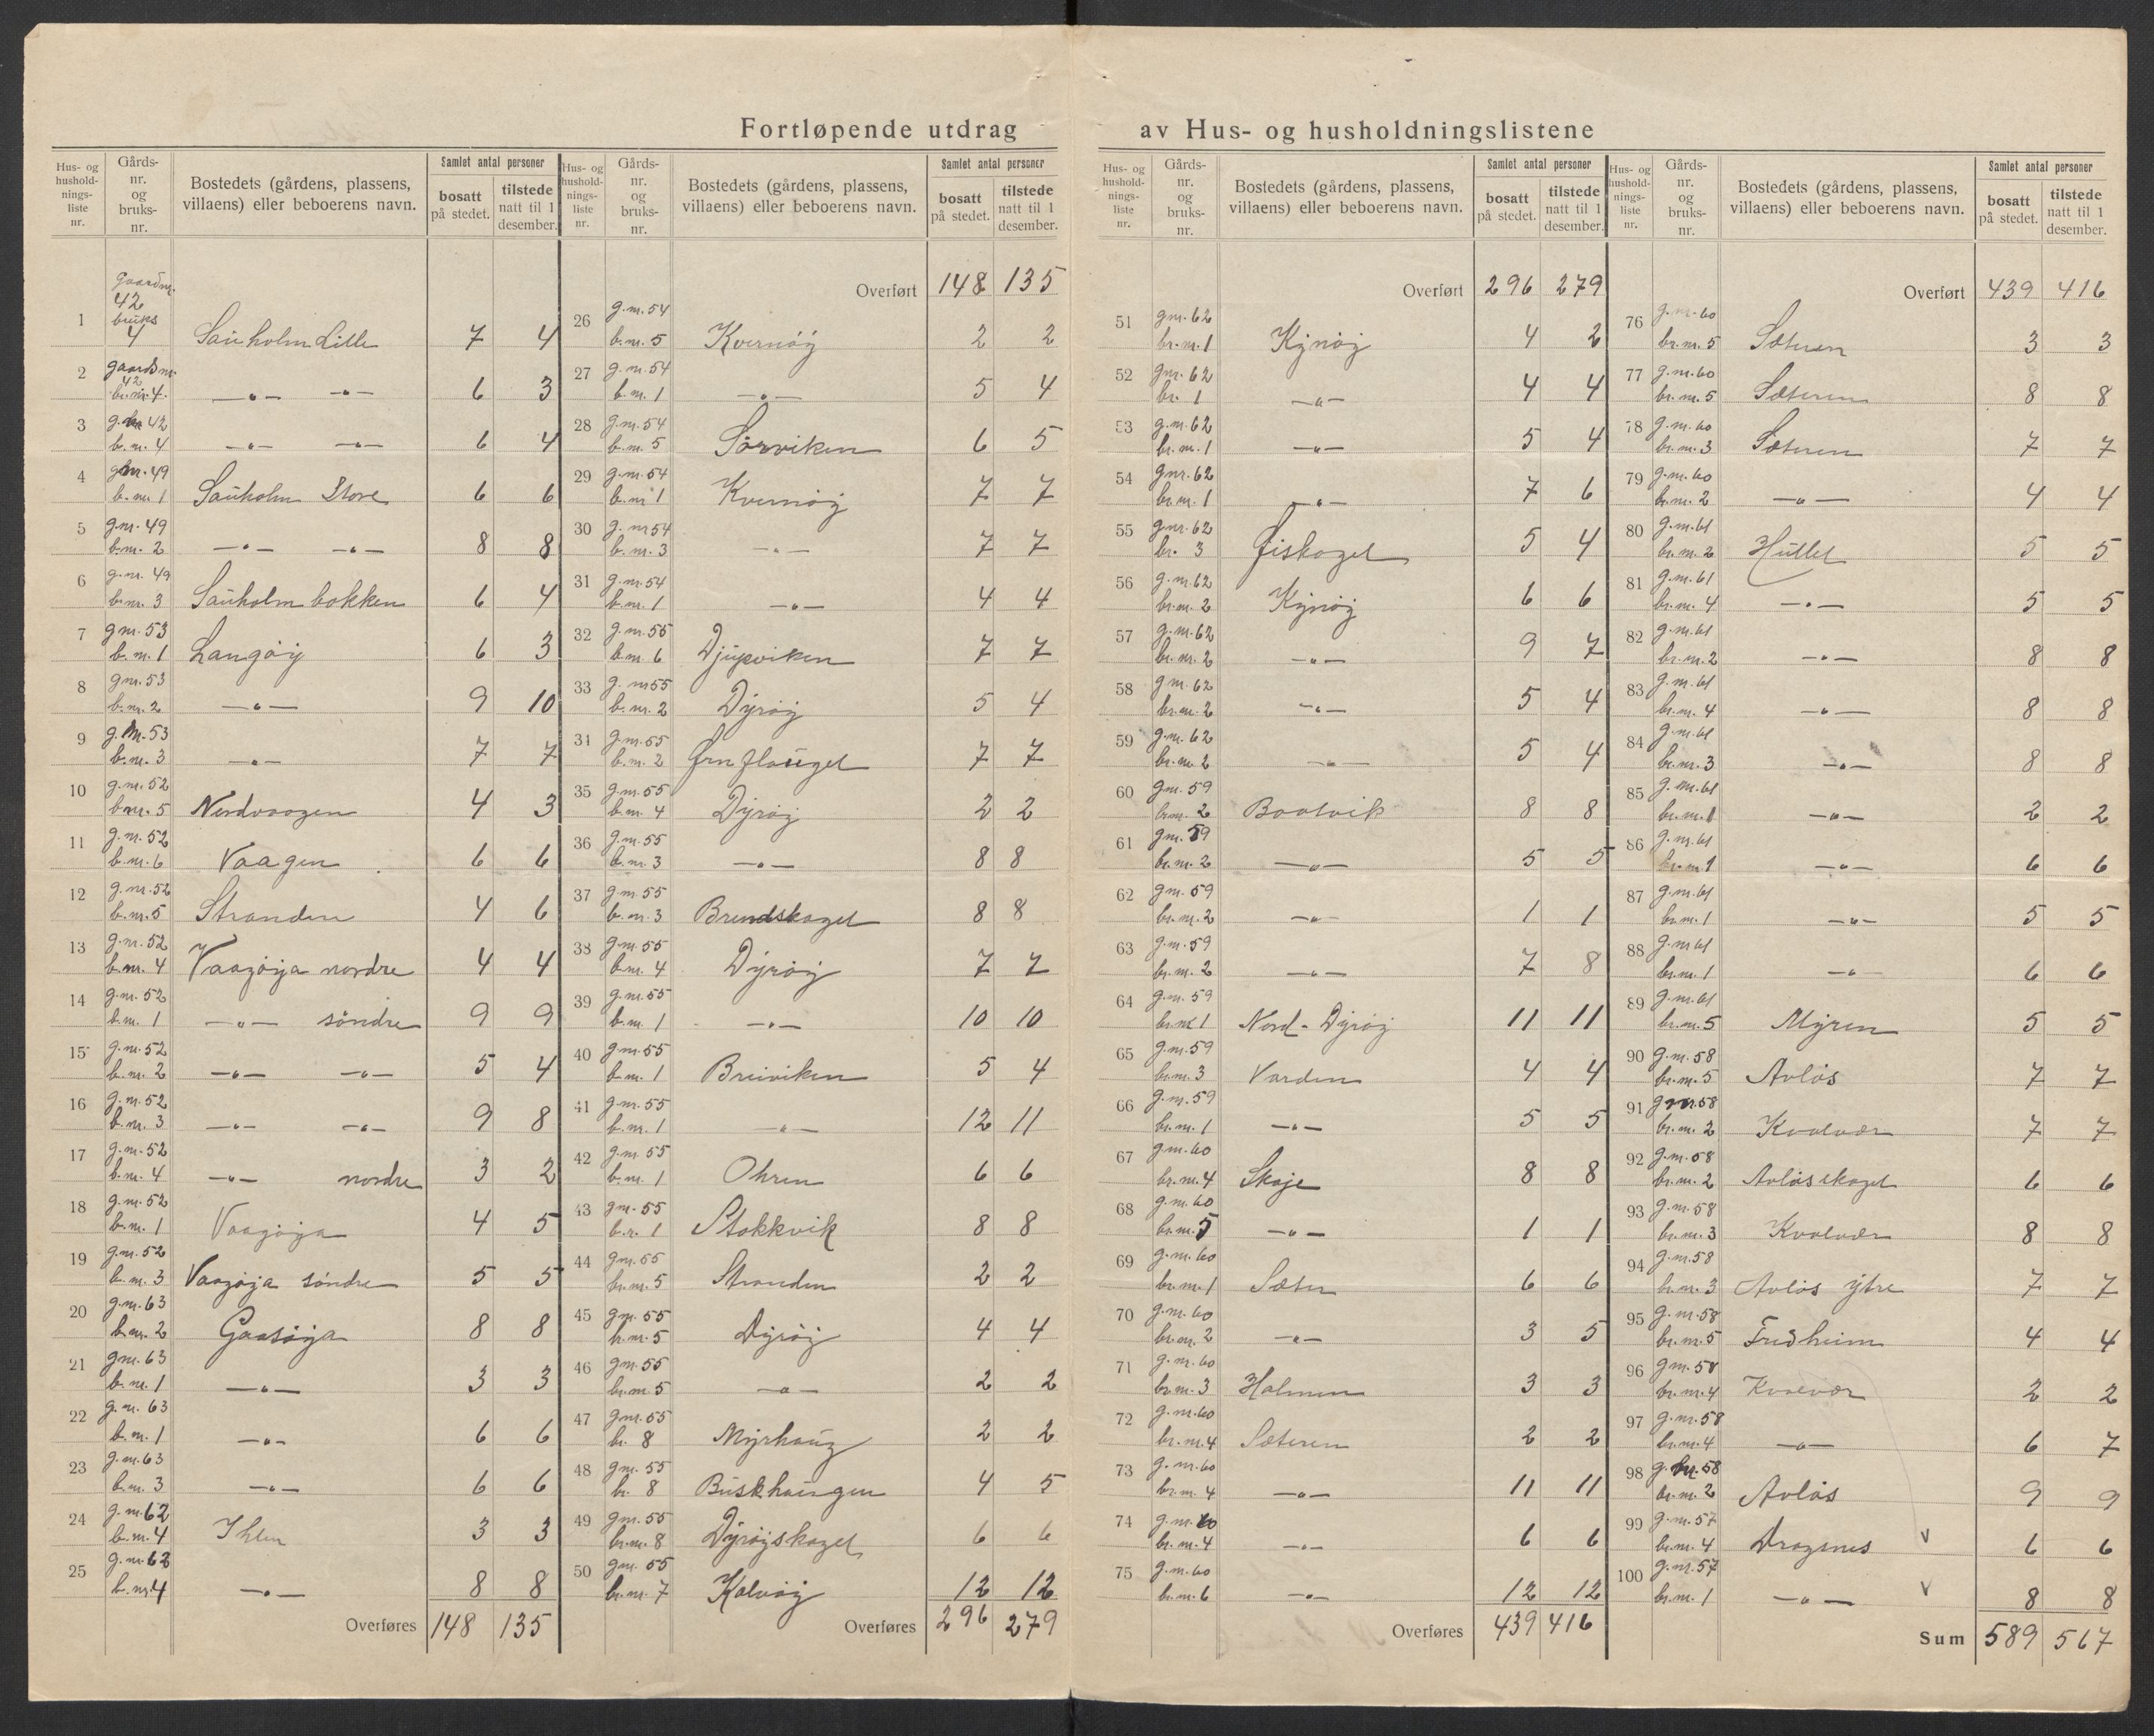 Fortløpende utdrag av Hus- og husholdningslistene
Hus- og husholdnings-liste nr. | Gårds-nr. og bruks-nr. | Bostedets (gårdens, plassens, villaens) eller beboerens navn. | Samlet antal personer bosatt på stedet. | tilstede natt til 1 desember.
1 gaardnr. 42 bruks 4 Sauholm Lille 7 4
2 gaardsnr. 42 br.nr. 4. —„— —„— 6 3
3 g. nr 42 b.nr. 4 —„— —„— 6 4
4 gnr. 49 b.nr. 1 Sauholm Store 6 6
5 g.nr. 49 b.nr. 2 —„— —„— 8 8
6 g.nr. 49 b.nr. 3 Sauholmbakken 6 4
7 gnr. 53 b.nr. 1 Langøy 6 3
8 gnr. 53 b.nr. 2 —„— 9 10
9 g.nr. 53 b.nr. 3 —„— 7 7
10 g.nr. 52 b.nr. 5 Nordvaagen 4 3
11 g.nr. 52 b.nr. 6 Vaagen 6 6
12 g.nr. 52 b.nr. 5 Stranden 4 6
13 g.nr. 52 b.nr. 4 Vaagøya nordre 4 4
14 g.nr. 52 b.nr. 1 —„— söndre 9 9
15 g.nr. 52 b.nr. 2 —„— —„— 5 4
16 g.nr. 52 b.nr. 3 —„— —„— 9 8
17 g.nr. 52 b.nr. 4 —„— nordre 3 2
18 g.nr. 52 b.nr. 1 Vaagøya 4 5
19 g.nr. 52 b.nr. 3 Vaagøya söndre 5 5
20 g.nr. 63 b.nr. 2 Gaasøya 8 8
21 gnr. 63 b.nr. 1 —„— 3 3
22 g.nr. 63 b.nr. 1 —„— 6 6
23 g.nr. 63 b.nr. 3 —„— 6 6
24 g.nr. 62 b.nr. 4 Ihlen 3 3
25 g.nr. 62 b.nr 4 —„— 8 8
Overføres 148 135
Hus- og husholdnings-liste nr. | Gårds-nr. og bruks-nr. | Bostedets (gårdens, plassens, villaens) eller beboerens navn. | Samlet antal personer bosatt på stedet. | tilstede natt til 1 desember.
Overført 148 135
26 g.nr. 54 b.nr. 5 Kvernøy 2 2
27 g.nr. 54 b.nr. 1 —„— 5 4
28 g.nr. 54 b.nr. 5 Sørviken 6 5
29 g.nr. 54 b.nr 1 Kvernøy 7 7
30 g. nr 54 b.nr. 3 —„— 7 7
31 g.nr. 54 b.nr. 1 —„— 4 4
32 g.nr. 55 b.nr. 6 Djupviken 7 7
33 g. nr 55 b.nr. 2 Dyrøy 5 4
34 g.nr. 55 b.nr. 2 Ørnflauget 7 7
35 g.nr. 55 b.nr. 4 Dyrøy 2 2
36 g.nr. 55 b.nr. 3 —„— 8 8
37 g.nr. 55 b.nr. 3 Brendskaget 8 8
38 g.nr. 55 b.nr. 4 Dyrøy 7 7
39 g.nr. 55 b.nr. 1 —„— 10 10
40 g.nr. 55 b.nr. 1 Breiviken 5 4
41 g.nr. 55 b.nr. 1 —„— 12 11
42 g.nr. 55 b.nr. 1 Ohren 6 6
43 gnr. 55 b.r. 1 Stokkvik 8 8
44 gnr. 55 br.nr. 5 Stranden 2 2
45 gnr. 55 br.nr. 5 Dyrøy 4 4
46 gnr. 55 br.nr. 5 —„— 2 2
47 gnr. 55 br. 8 Myrhaug 2 2
48 gnr. 55 br. 8 Buskhaugen 4 5
49 gnr. 55 br.nr. 8 Dyrøyskaget 6 6
50 gnr. 55 br.nr. 7 Kalvøy 12 12
Overføres 296 279
Hus- og husholdnings-liste nr. | Gårds-nr. og bruks-nr. | Bostedets (gårdens, plassens, villaens) eller beboerens navn. | Samlet antal personer bosatt på stedet. | tilstede natt til 1 desember.
Overført 296 279
51 gnr. 62 br.nr. 1 Kynøy 4 2
52 gnr. 62 br. 1 —„— 4 4
53 g.nr. 62 br.nr. 1 —„— 5 4
54 gnr. 62 br.nr. 1 —„— 7 6
55 gnr. 62 br. 3 5 4
56 g.nr. 62 br.nr. 2 Kynøy 6 6
57 g.nr. 62 br.nr. 2 —„— 9 7
58 g nr. 62 br.nr. 2 —„— 5 4
59 g.nr. 62 br.nr. 2 —„— 5 4
60 gnr. 59 br.nr. 2 Baatvik 8 8
61 gnr. 59 br.nr. 2 —„— 5 5
62 gnr. 59 br.nr. 2 —„— 1 1
63 g.nr. 59 br.nr. 2 —„— 7 8
64 g.nr. 59 br.nr 1 Nord-Dyrøy 11 11
65 g.nr. 59 br.nr. 3 Varden 4 4
66 g.nr. 59 br.nr. 1 —„— 5 5
67 gnr. 60 br.nr. 4 Skaje 8 8
68 g.nr. 60 br.nr. 5 —„— 1 1
69 g.nr. 60 br.nr. 1 Sæter 6 6
70 g.nr. 60 br.nr. 2 —„— 3 5
71 g.nr. 60 br.nr. 3 Holmen 3 3
72 g.nr. 60 br.nr. 4 Sæteren 2 2
73 g.nr. 60 br.nr. 4 —„— 11 11
74 g.nr. 60 br.nr. 4 —„— 6 6
75 g.nr. 60 br.nr. 6 —„— 12 12
Overføres 439 416
Hus- og husholdnings-liste nr. | Gårds-nr. og bruks-nr. | Bostedets (gårdens, plassens, villaens) eller beboerens navn. | Samlet antal personer bosatt på stedet. | tilstede natt til 1 desember.
Overført 439 416
76 g.nr. 60 br.nr. 5 Sæteren 3 3
77 g.nr. 60 br.nr. 5 Sæteren 8 8
78 g.nr. 60 br.nr. 3 Sæteren 7 7
79 g.nr. 60 br.nr. 2 —„— 4 4
80 g.nr. 61 br.nr. 2 Hullet 5 5
81 g.nr. 61 br.nr. 4 —„— 5 5
82 g.nr. 61 br.nr. 2 —„— 8 8
83 g.nr. 61 br.nr. 4 —„— 8 8
84 g.nr. 61 br.nr. 3 —„— 8 8
85 g.nr. 61 br.nr. 1 —„— 2 2
86 g.nr. 61 br.nr 1 —„— 6 6
87 g.nr. 61 br.nr. 1 —„— 5 5
88 g.nr 61 br.nr. 1 —„— 6 6
89 g.nr. 61 br.nr. 5 Myren 5 5
90 g.nr. 58 br.nr. 5 Avløs 7 7
91 gnr. 58 br.nr. 2 Kvalvær 7 7
92 g.nr. 58 br.nr. 2 Avløsskaget 6 6
93 g.nr. 58 br.nr. 3 Kvalvær 8 8
94 g.nr. 58 br.nr. 3 Avløs ytre 7 7
95 g.nr. 58 br.nr. 5 Fredheim 4 4
96 gnr. 58 br.nr. 4 Kvalvær 2 2
97 g.nr. 58 br.nr. 4 —„— 6 7
98 g.nr. 58 br.nr. 2 Avløs 9 9
99 g.nr. 57 br.nr. 4 Dragsnes V 6 6
100 g.nr. 57 br.nr. 1 —„— V 8 8
Sum 589 567